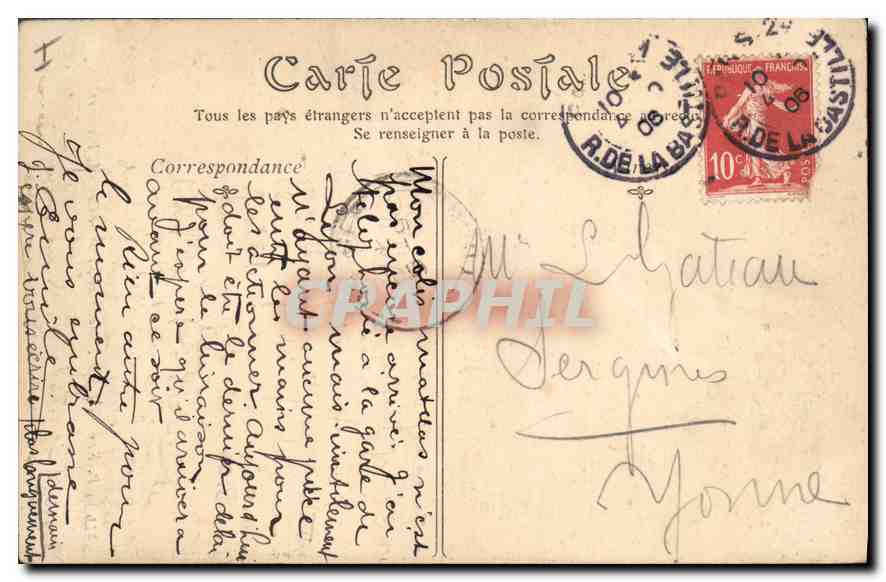 Carte Postale
Tous les pays étrangers n'acceptent pas la correspondance au recto
Se renseigner à la poste.
Correspondance
RÉPUBLIQUE FRANÇAISE
10 c
POSTES
10
4
06
R. DE LA BASTILLE
10
4
06
R. DE LA BASTILLE
Mr L. Gateau
Sergines
Yonne
Mon colis matelas n'est
pas encore arrivé. J'ai
téléphoné à la gare de
Lyon mais inutilement
n'ayant aucune pièce
entre les mains pour
les actionner. Aujourd'hui
doit être le dernier délai
pour la livraison
J'espère qu'il arrivera
avant ce soir
Rien autre pour
le moment.
Je vous embrasse
J'espère vous écrire demain
plus longuement
CPAPHIL